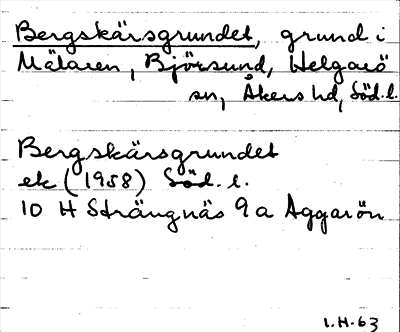 Bergskärsgrundet, grund i
Mälaren, Björsund, Helgarö
sn, Åkers hd, Söd. l.
Bergskärsgrundet
ek (1958) Söd. l.
10 H Strängnäs 9a Aggarön
I.H.63